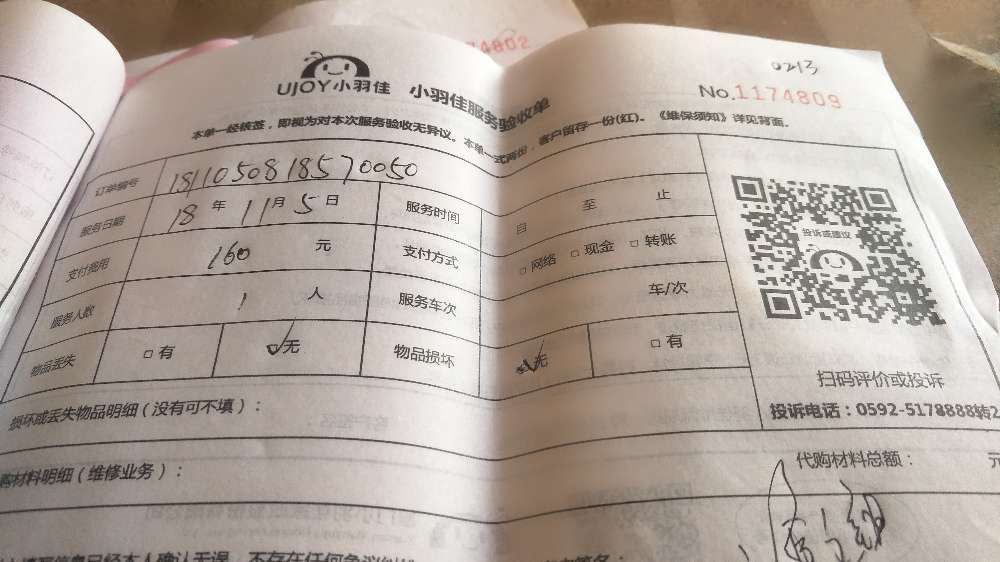 74802
0213
UJOY小羽佳 小羽佳服务验收单 No.1174809
本单一经核签，即视为对本次服务验收无异议。本单一式两份，客户留存一份(红)。《维保须知》详见背面。
订单编号 181105081857 0050
服务日期 18 年 11 月 5 日 服务时间 自 至 止
支付费用 160 元 支付方式 □ 网络 □ 现金 □ 转账
服务人数 1 人 服务车次 车/次
物品丢失 □ 有 ☑无 物品损坏 ☑无 □ 有
投诉或建议
扫码评价或投诉
投诉电话：0592-5178888转2
损坏或丢失物品明细（没有可不填）：
材料明细（维修业务）： 代购材料总额： 元
信息已经本人确认无误，不存在任何争议纠纷
签名：